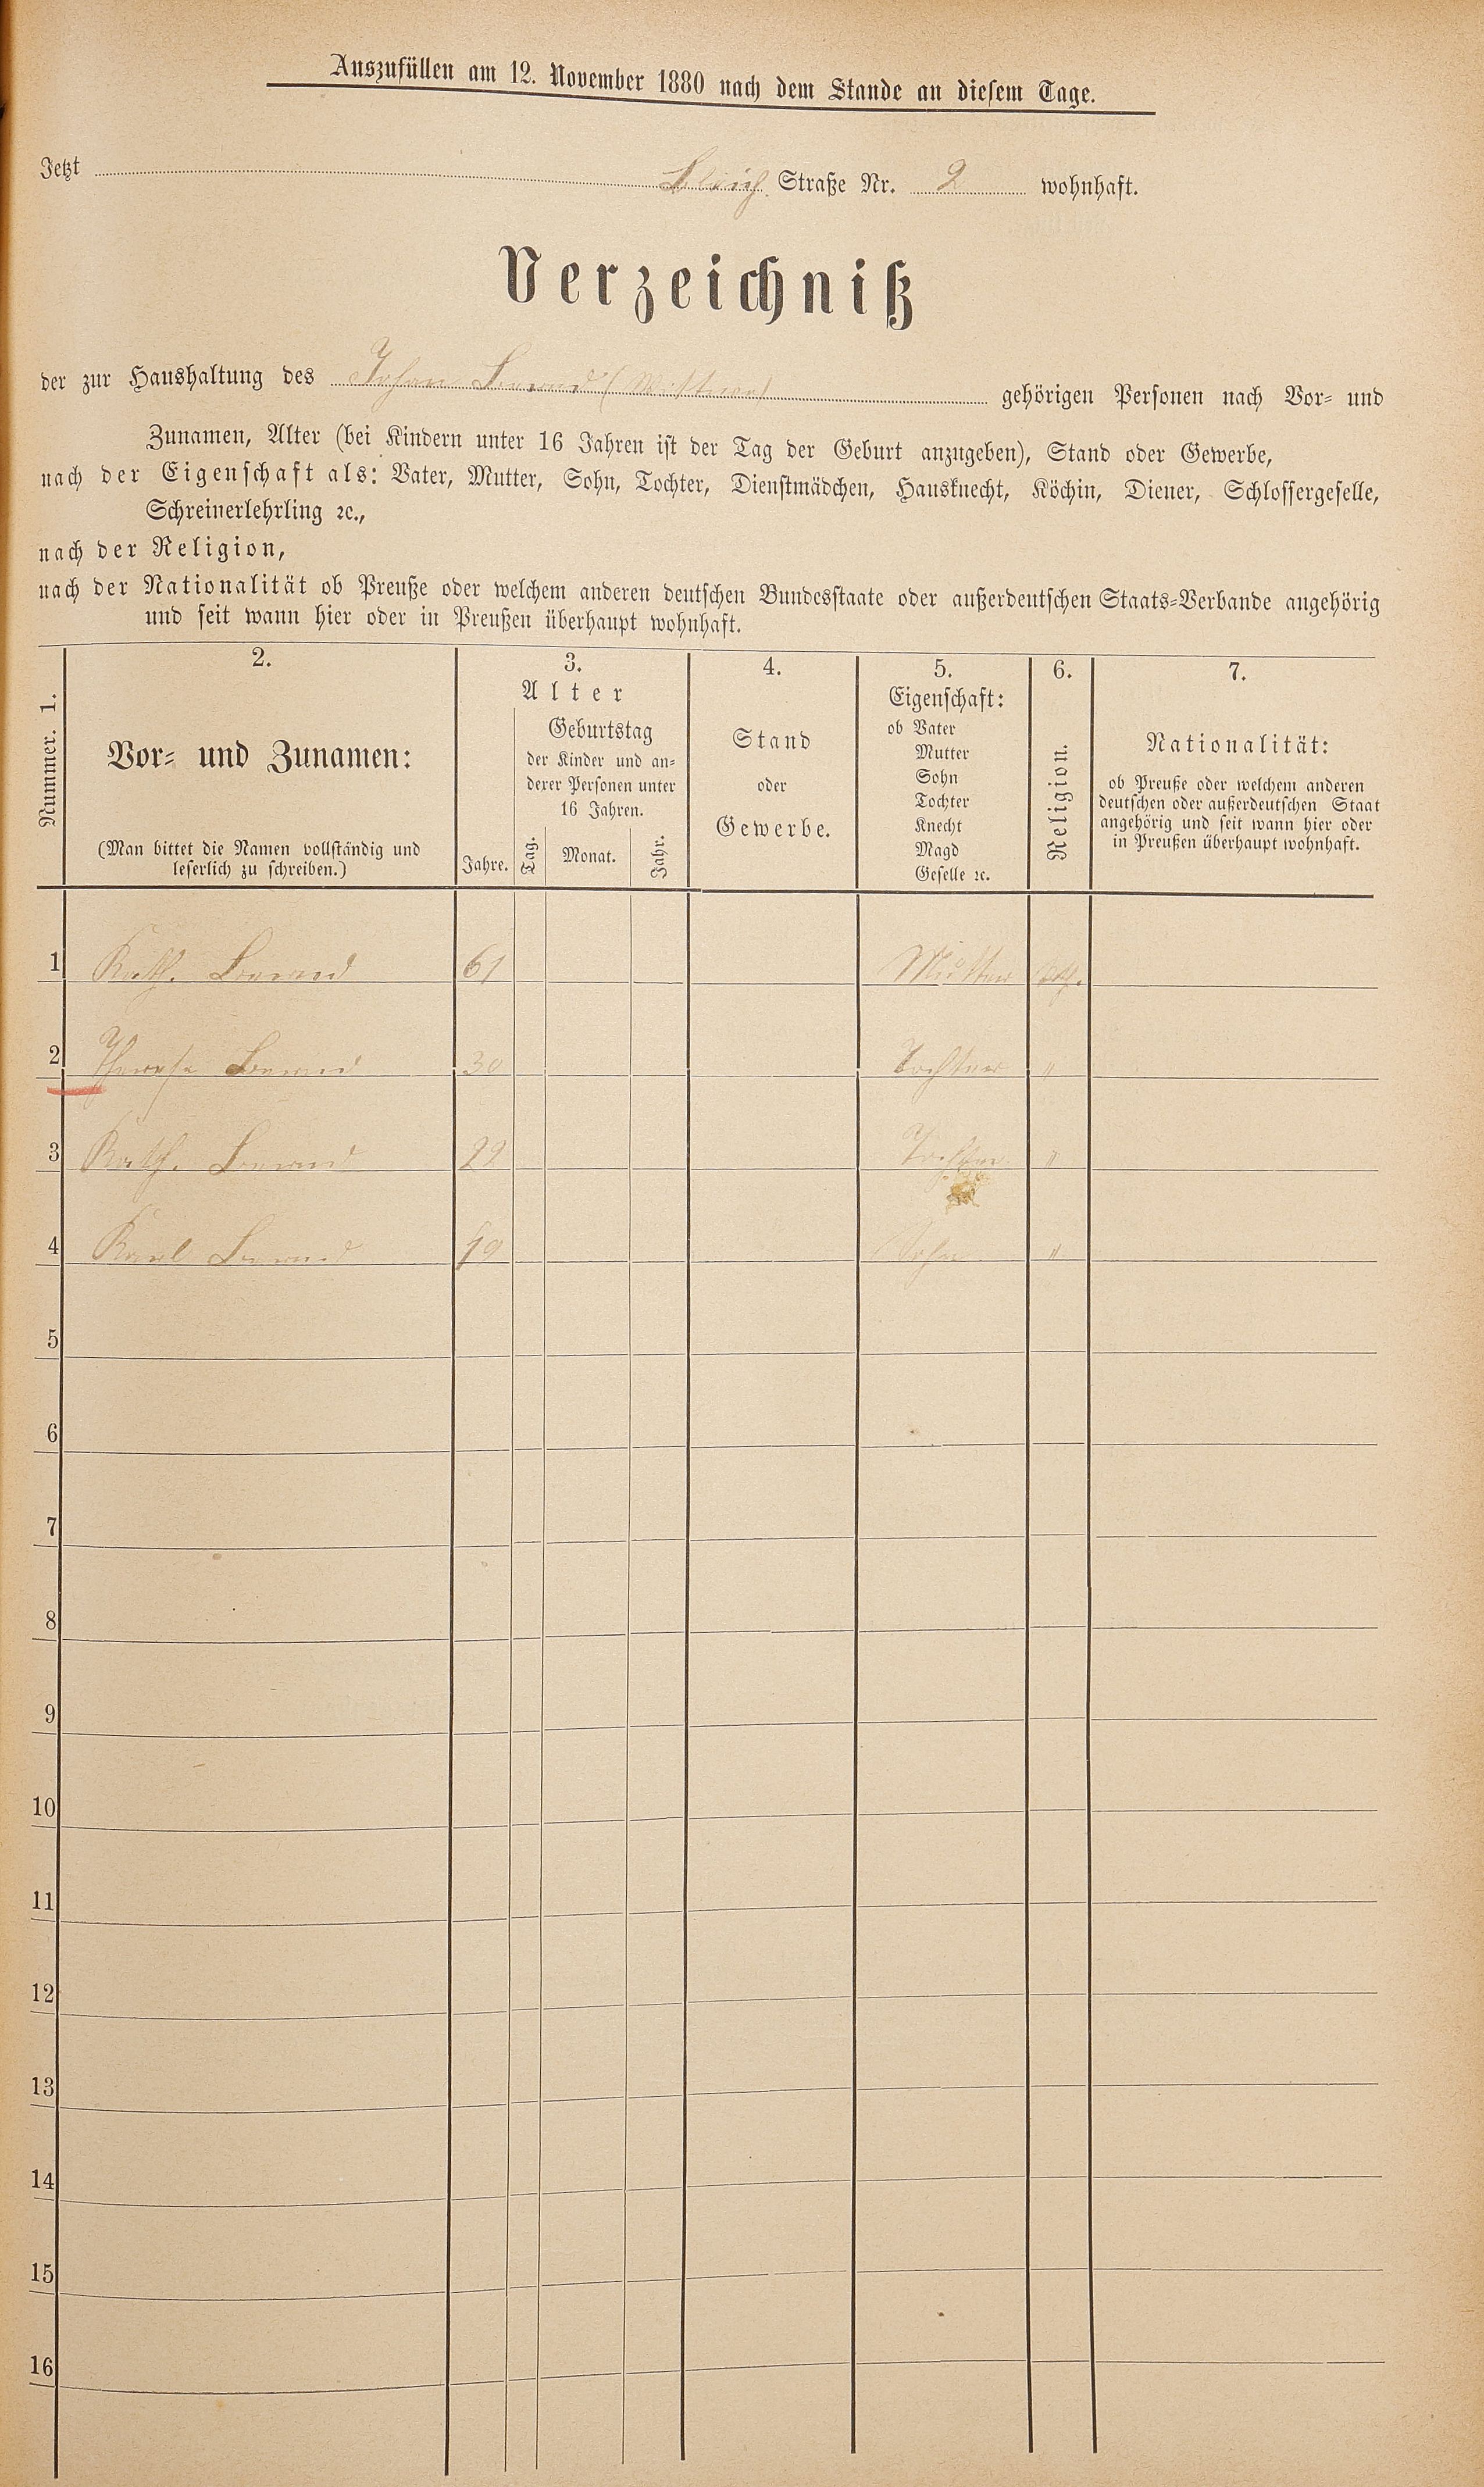 Auszufüllen am 12. November 1880 nach dem Stande an diesem Tage.
Jetzt Bleich Straße Nr. 2 wohnhaft.
Verzeichniß
der zur Haushaltung des Johan (Wittwe) gehörigen Personen nach Vor- und
Zunamen, Alter (bei Kindern unter 16 Jahren ist der Tag der Geburt anzugeben), Stand oder Gewerbe,
nach der Eigenschaft als: Vater, Mutter, Sohn, Tochter, Dienstmädchen, Hausknecht, Köchin, Diener, Schlossergeselle,
Schreinerlehrling ꝛc.,
nach der Religion,
nach der Nationalität ob Preuße oder welchem anderen deutschen Bundesstaate oder außerdeutschen Staats-Verbande angehörig
und seit wann hier oder in Preußen überhaupt wohnhaft.
Nummer. 1.
2.
Vor- und Zunamen:
(Man bittet die Namen vollständig und
leserlich zu schreiben.)
3.
Alter
Jahre.
Geburtstag
der Kinder und an-
derer Personen unter
16 Jahren.
Tag. Monat. Jahr.
4.
Stand
oder
Gewerbe.
5.
Eigenschaft:
ob Vater
Mutter
Sohn
Tochter
Knecht
Magd
Geselle ꝛc.
6.
Religion.
7.
Nationalität:
ob Preuße oder welchem anderen
deutschen oder außerdeutschen Staat
angehörig und seit wann hier oder
in Preußen überhaupt wohnhaft.
1 Kath. 61 Mutter kth.
2 Therese 30 Tochter "
3 Kath. 22 Tochter "
4 Karl 19 Sohn "
5
6
7
8
9
10
11
12
13
14
15
16